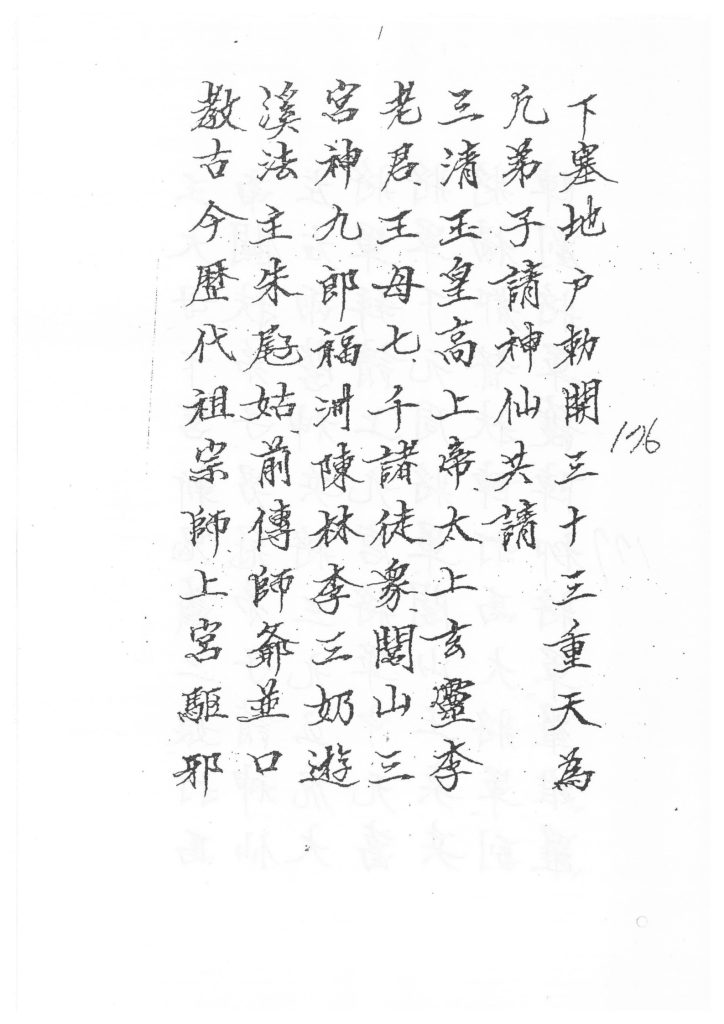 下塞地户勅開三十三重天為
凡弟子請神仙共請
三清玉皇高上帝太上玄靈李
老君王母七千諸徒衆閭山三
宮神九郎福州陳林李三奶遊
溪法主朱冠姑前傳師爺並口
教古今歷代祖宗師上宮驅邪
176